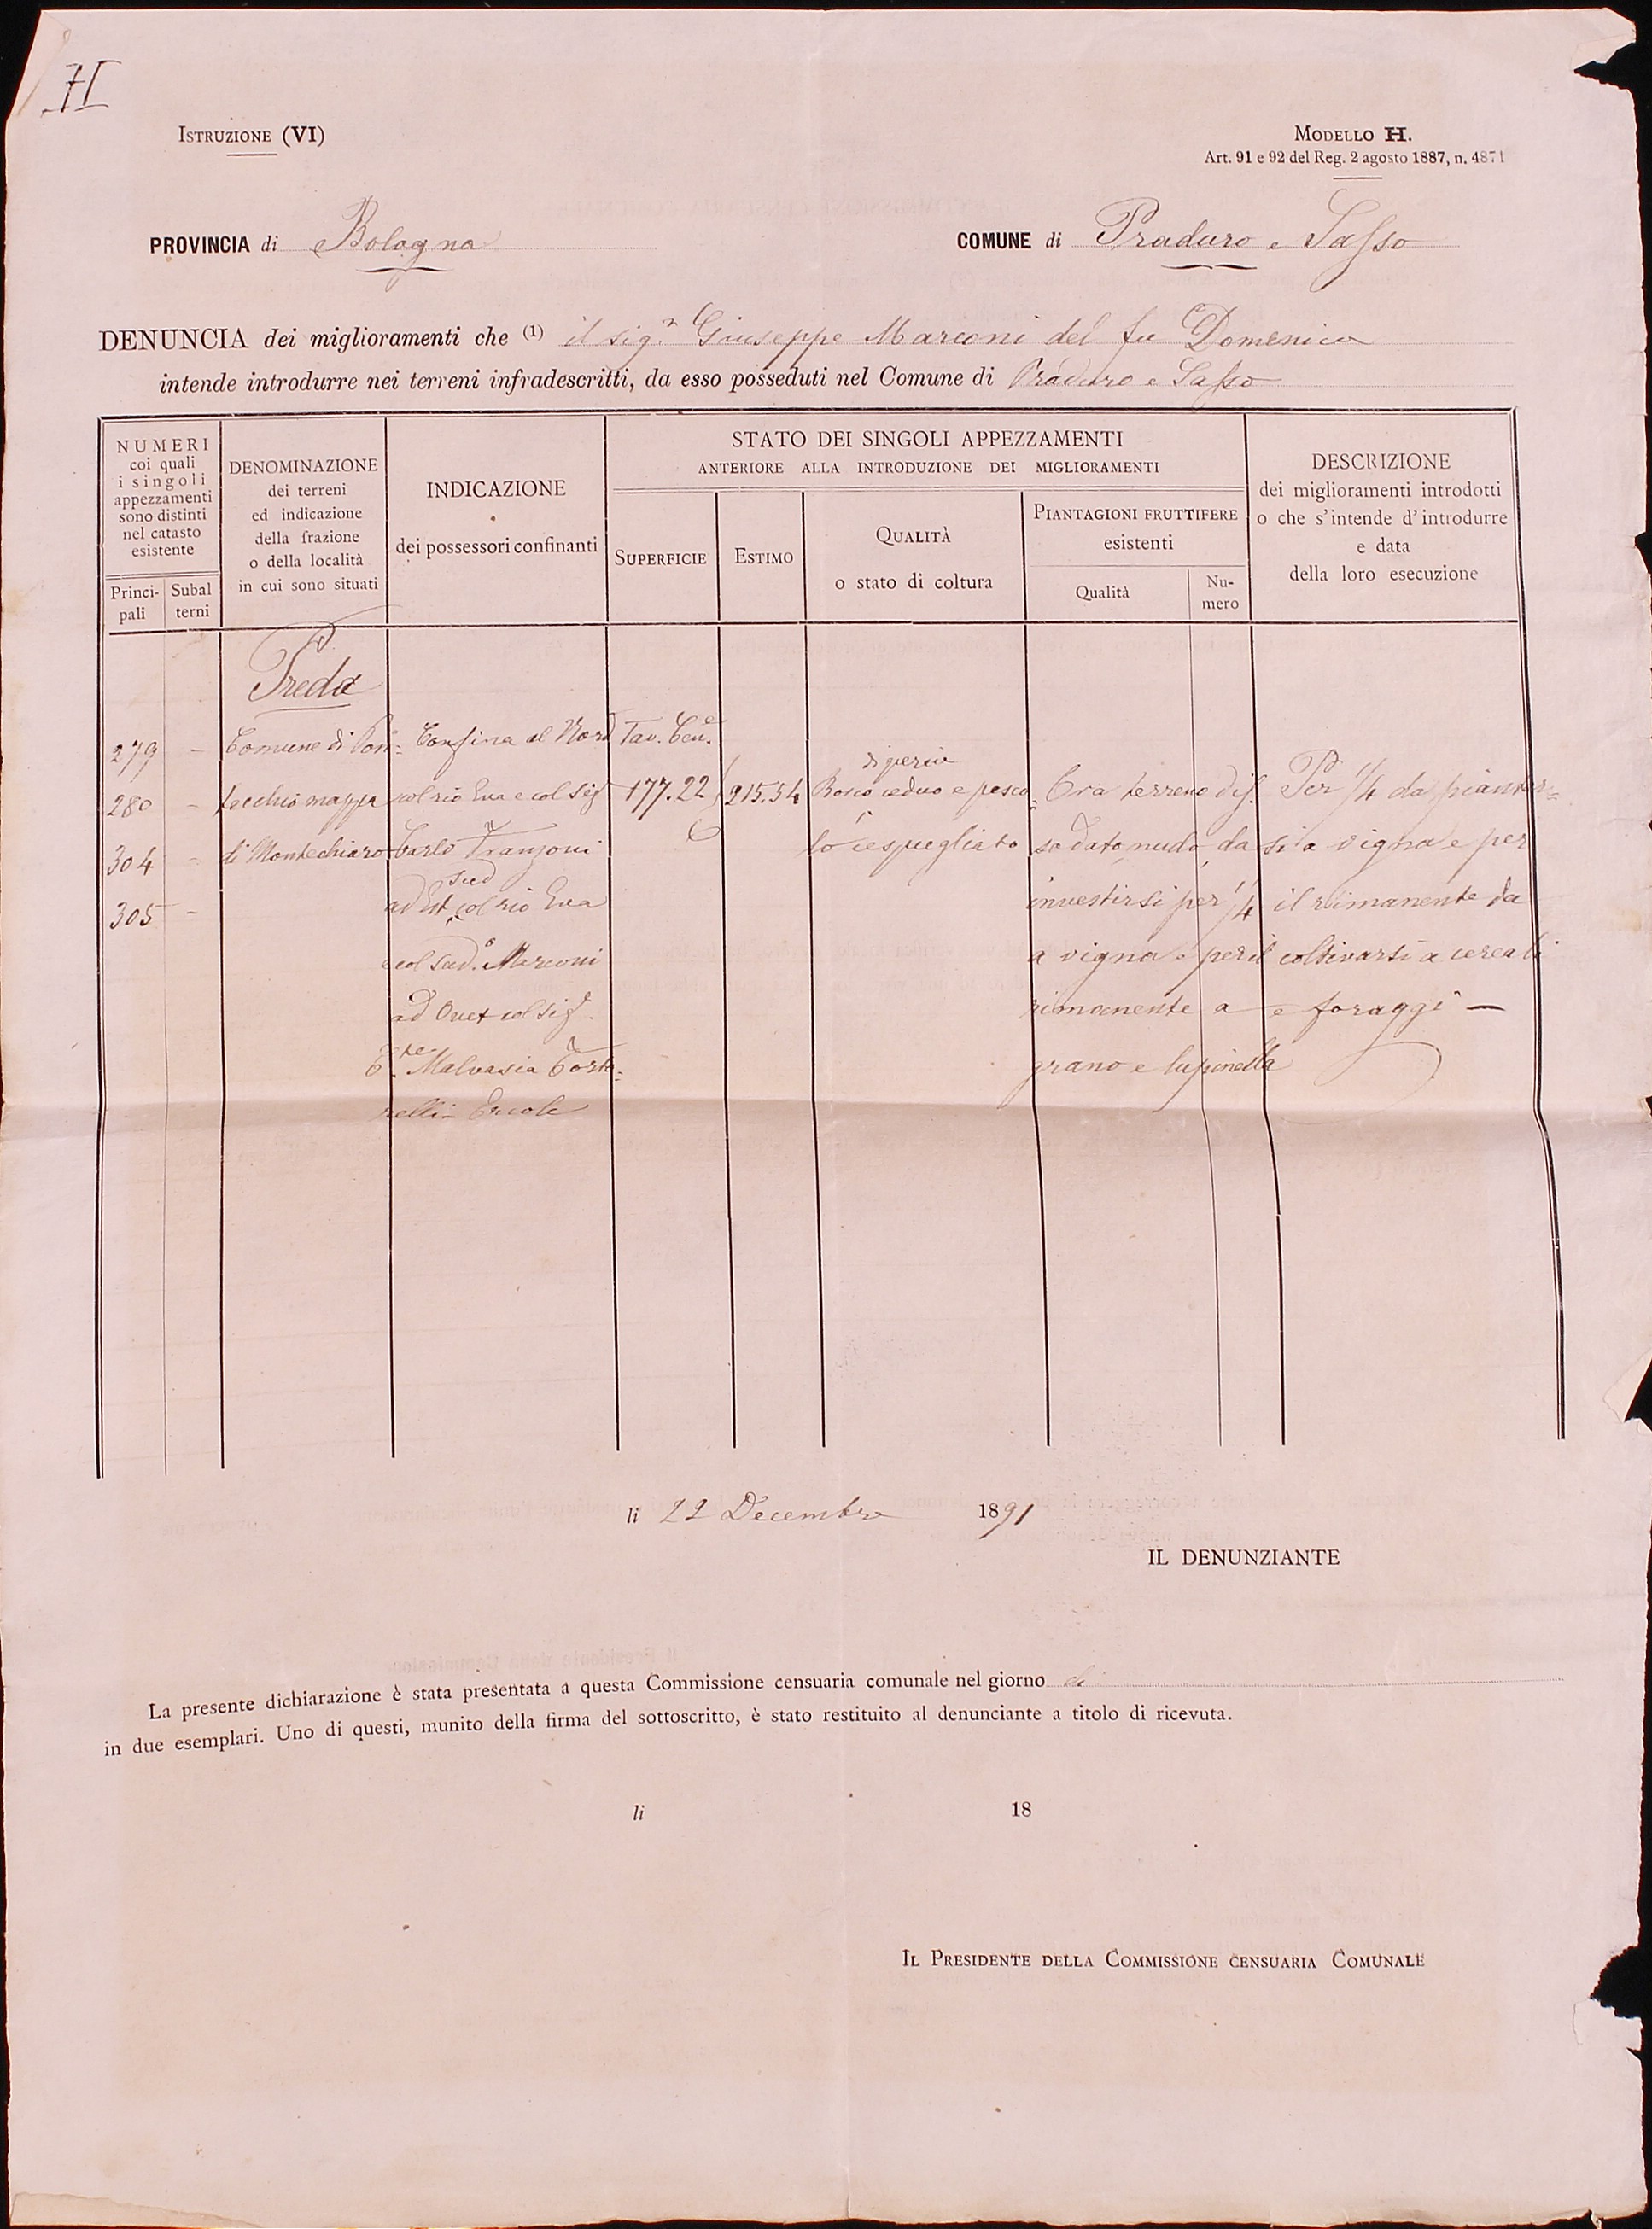 H
ISTRUZIONE (VI)
MODELLO H.
Art. 91 e 92 del Reg. 2 agosto 1887, n. 4871
PROVINCIA di Bologna
COMUNE di Praduro e Sasso
DENUNCIA dei miglioramenti che (1) il sigr Giuseppe Marconi del fu Domenico
intende introdurre nei terreni infradescritti, da esso posseduti nel Comune di Praduro e Sasso
NUMERI
coi quali
i singoli
appezzamenti
sono distinti
nel catasto
esistente
Princi-
pali
Subal
terni
DENOMINAZIONE
dei terreni
ed indicazione
della frazione
o della località
in cui sono situati
INDICAZIONE
dei possessori confinanti
STATO DEI SINGOLI APPEZZAMENTI
ANTERIORE ALLA INTRODUZIONE DEI MIGLIORAMENTI
SUPERFICIE
ESTIMO
QUALITÀ
o stato di coltura
PIANTAGIONI FRUTTIFERE
esistenti
Qualità
Nu-
mero
DESCRIZIONE
dei miglioramenti introdotti
o che s'intende d'introdurre
e data
della loro esecuzione
279 -
280 -
304 -
305 -
Preda
Comune di Pon=
tecchio mappa
di Montechiaro
Confina al Nord
col rio Eva e col Sigr
Carlo Franzoni
sud
ad Est col rio Eva
e col sud.o Marconi
ad Ovest col Sigr.
C.te Malvasia Torto=
relli Ercole
Tav. Cen.
177.22
215.54
Bosco ceduo e pasco=
lo cespugliato
Ora terreno dis=
sodato nudo da
investirsi per 1/4
a vigna e per il
rimanente a
grano e lupinella
Per 1/4 da piantar=
si a vigna e per
il rimanente da
coltivarsi a cereali
e foraggi —
li 22 Decembre 1891
IL DENUNZIANTE
La presente dichiarazione è stata presentata a questa Commissione censuaria comunale nel giorno di
in due esemplari. Uno di questi, munito della firma del sottoscritto, è stato restituito al denunciante a titolo di ricevuta.
li 18
IL PRESIDENTE DELLA COMMISSIONE CENSUARIA COMUNALE